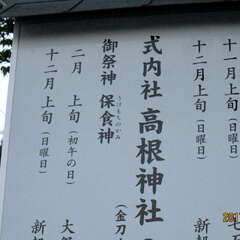 十一月上旬(日曜日)
七五
十二月上旬(日曜日)
新穀
式内社 高根神社
(金刀
御祭神 保食神
うけもちのかみ
二月 上旬(初午の日)
大祭
十二月 上旬(日曜日)
新穀